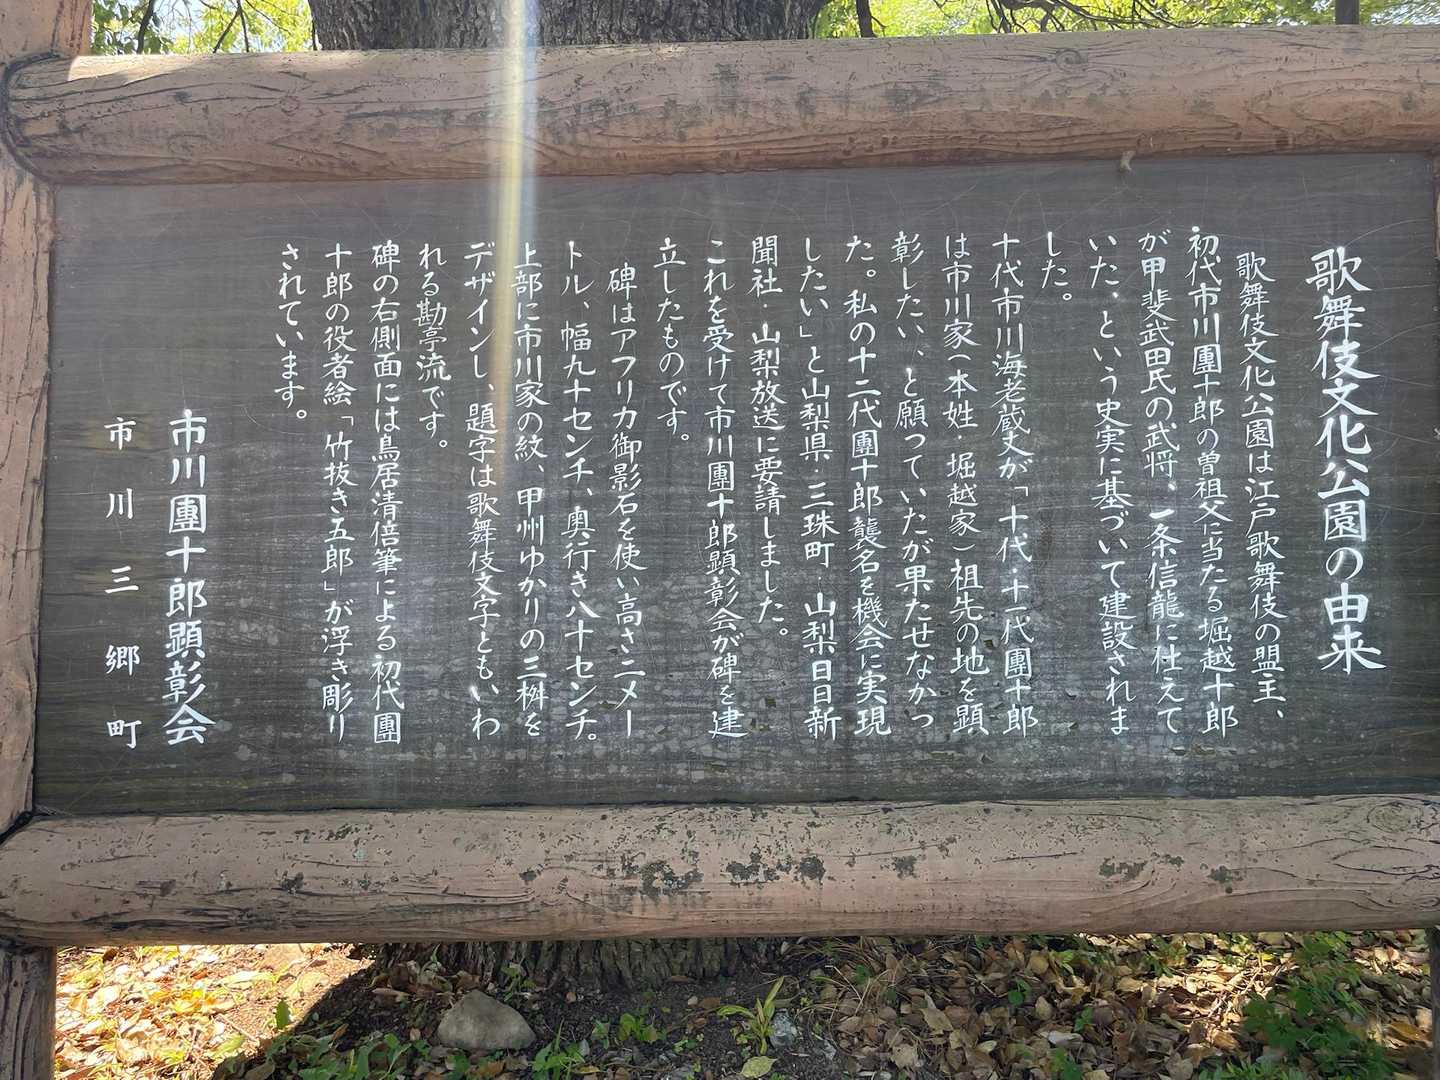 歌舞伎文化公園の由来
歌舞伎文化公園は江戸歌舞伎の盟主、
初代市川團十郎の曽祖父に当たる堀越十郎
が甲斐武田氏の武将、一条信龍に仕えて
いた、という史実に基づいて建設されま
した。
十代市川海老蔵丈が「十代・十一代團十郎
は市川家(本姓・堀越家)祖先の地を顕
彰したい、と願っていたが果たせなかっ
た。私の十二代團十郎襲名を機会に実現
したい」と山梨県・三珠町・山梨日日新
聞社・山梨放送に要請しました。
これを受けて市川團十郎顕彰会が碑を建
立したものです。
碑はアフリカ御影石を使い高さ二メー
トル、幅九十センチ、奥行き八十センチ。
上部に市川家の紋、甲州ゆかりの三桝を
デザインし、題字は歌舞伎文字ともいわ
れる勘亭流です。
碑の右側面には鳥居清倍筆による初代團
十郎の役者絵「竹抜き五郎」が浮き彫り
されています。
市川團十郎顕彰会
市川三郷町